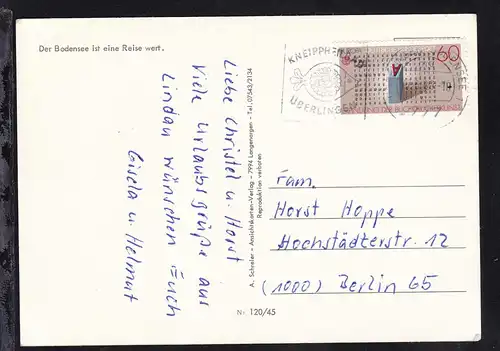 Der Bodensee ist eine Reise wert.
Liebe Christel u. Horst
Viele Urlaubsgrüße aus
Lindau wünschen Euch
Gisela u. Helmut
A. Schreier - Ansichtskarten-Verlag - 7994 Langenargen - Tel. 07543/2134
Reproduktion verboten
Nr. 120/45
KNEIPPHEILBAD
ÜBERLINGEN
60
A
Fam.
Horst Hoppe
Hochstädterstr. 12
(1000) Berlin 65